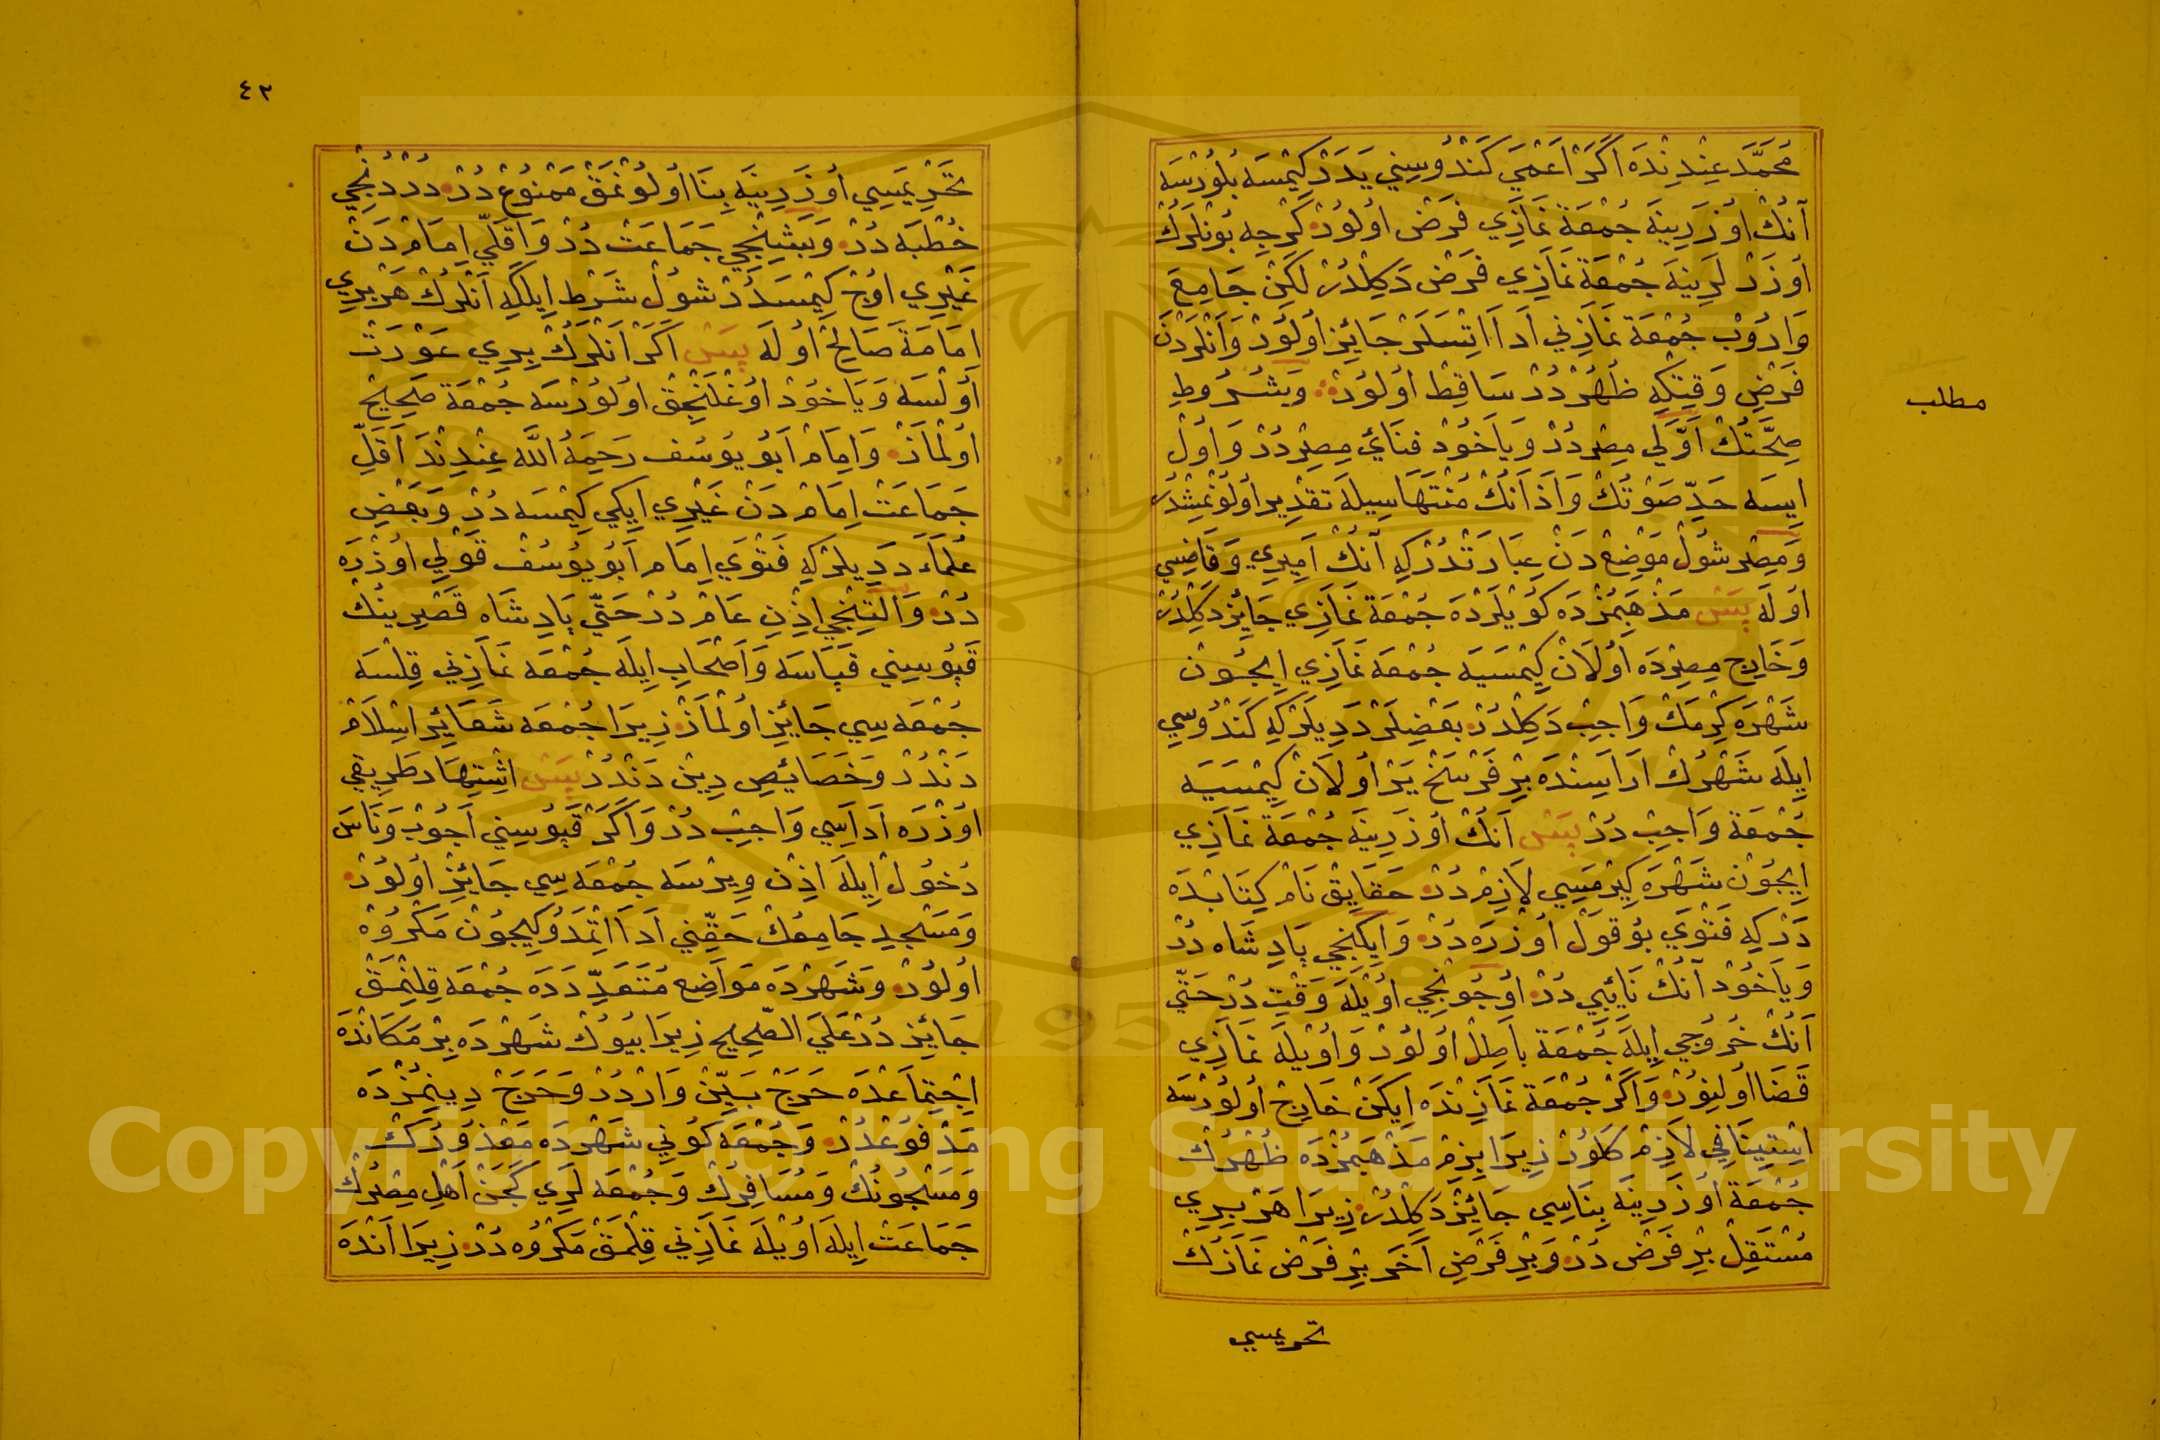 مُحَمَّدَ عِنْدِنْدَه اَكَرْ اَعْمَيَ كَنْدُوسِنِي يَدَرْ كِيْمْسَه بُلُورْسَه
اَنُكْ اُوزَرِينَه جُمْعَةْ نَمَازِي فَرَضْ اُولُورْ كَرْچِه بُونْلَرُكْ
اُوزَرْلَرِينَه جُمْعَةْ نَمَازِي فَرَضْ دَكِلْدُرْ لَكِنْ جَامِعَ
وَارُوبْ جُمْعَةْ نَمَازِنِي اَدَا اِتْسَلَرْ جَائِزْ اُولُورْ وَاَنْلَرْدَنْ
فَرْضِ وَقِتكِه ظُهُرْ دُرْ سَاقِطْ اُولُورْ وَشُرُوطِ
صِحَّتُكْ اَوَّلِي مِصْردُرْ وَيَاخُودْ فِنَائِ مِصِرْدُرْ وَاُولْ
اِيسَه حَدِّ صَوْتُكْ وَاَذَانُكْ مُنْتَهَاسِيلَه تَقْدِير اُولُونْمِشْدُرْ
وَمِصْر شُولْ مَوْضِعْ دَنْ عِبَارَتْدُرْكِه اَنُكْ اَمِيرِي وَقَاضِيسِي
اُولَه پَسْ مَذْهَبِمُزْدَه كُويْلَرْدَه جُمْعَةْ نَمَازِي جَائِزْ دَكِلْدُرْ
وَخَارِج مِصِرْدَه اُولَانْ كِيْمْسَيَه جُمْعَه نَمَازِي اِيچُونْ
شَهْرَه كِرْمَكْ وَاجِبْ دَكِلْدُرْ بَعْضِلَرْ دَدِيلَرْكِه كَنْدُوسِي
اِيلَه شَهْرُكْ اَرَاسِنْدَه بِرْ فَرْسَخْ يَرْ اُولَانْ كِيْمْسَيَه
جُمْعَةْ وَاجِبْ دُرْ پَسْ اَنُكْ اُوزَرِينَه جُمْعَةْ نَمَازِي
اِيچُونْ شَهْرَه كِيرْمَسِي لَازِمْ دُرْ حَقَايِقْ نَامْ كِتَابْدَه
دَرْكِه فَتْوَى بُو قَوْلْ اُوزْرَه دُرْ وَاِيكِنْجِي پَادِشَاه دُرْ
وَيَاخُودْ اَنُكْ نَايِبِي دُرْ اُوچُونْجِي اُويْلَه وَقْتِ دُرْ حَتَّي
اَنُكْ خُرُوجِي اِيلَه جُمْعَةْ بَاطِلْ اُولُورْ وَاُويْلَه نَمَازِي
قَضَا اُولِنُورْ وَاَكَرْ جُمْعَةْ نَمَازِنْدَه اِيكَنْ خَارِجْ اُولُورْسَه
اِسْتِينَافِي لَازِمْ كَلُورْ زِيرَا بِزِمْ مَذْهَبِمُزْدَه ظُهْرُكْ
جُمْعَةْ اُوزَرِينَه بِنَاسِي جَائِزْ دَكِلْدُرْ زِيرَا هَرْ بِرِي
مُسْتَقِلْ بِرْ فَرَضْ دُرْ وَبِرْ فَرْضِ اَخَرْ بِرْ فَرْضْ نَمَازُكْ
تحريمسي
مطلب
٤٢
تَحْرِيمَسِي اُوزَرِينَه بِنَا اُولُونْمَقْ مَمْنُوعْ دُرْ دُرْدُنْجِي
خُطْبَه دُرْ وَبَشِنْجِي جَمَاعَتْ دُرْ وَاَقَلِّي اِمَامْ دَنْ
غَيْرِي اُوچْ كِيْمْسَه دُرْ شُولْ شَرْط اِيلَكِه اَنْلَرُكْ هَرْ بِرِي
اِمَامَةَ صَالِحْ اُولَه پَسْ اَكَرْ اَنْلَرُكْ بِرِي عَوْرَتْ
اُولْسَه وَيَاخُودْ اُوغْلَنْجِقْ اُولُورْسَه جُمْعَةْ صَحِيحْ
اُولْمَازْ وَاِمَامْ اَبُو يُوسُف رَحِمَهُ اللّٰه عِنْدِنْدَه اَقَلِّ
جَمَاعَتْ اِمَامْ دَنْ غَيْرِي اِيكِي كِيْمْسَه دُرْ وَبَعْضِ
عُلَمَاءْ دَدِيلَرْكِه فَتْوَي اِمَام اَبُو يُوسُفْ قَوْلِي اُوزْرَه
دُرْ وَالْتِنْجِي اِذْنِ عَامْ دُرْ حَتَّي پَادِشَاه قَصْرِينُكْ
قَپُوسِنِي قَپَاسَه وَاَصْحَابِ اِيلَه جُمْعَه نَمَازِنِي قِلْسَه
جُمْعَه سِي جَائِزْ اُولْمَازْ زِيرَا جُمْعَه شَعَائِرِ اِسْلَامْ
دَنْدُرْ وَخَصَائِصِ دِينْ دَنْدُرْ پَسْ اِشْتِهَار طَرِيقِي
اُوزْرَه اَدَاسِي وَاجِبْ دُرْ وَاَكَرْ قَپُوسِنِي اَچُوبْ وَنَاسَ
دُخُولْ اِيلَه اِذْنْ وِيرْسَه جُمْعَه سِي جَائِزْ اُولُورْ
وَمَسْجِدِ جَامِعُكْ حَقِّنِي اَدَا اِتْمَدُوكِيچُونْ مَكْرُوهْ
اُولُورْ وَشَهْرْدَه مَوَاضِعِ مُتَعَدِّدَه دَه جُمْعَه قِلِنْمَقْ
جَائِزْ دُرْ عَلَي الصَّحِيحِ زِيرَا بُيُوكْ شَهْرْدَه بِرْ مَكَانْدَه
اِجْتِمَاعْدَه حَرَجْ بَيِّنْ وَارْدُرْ وَحَرَجْ دِينِمُزْدَه
مَدْفُوعْدُرْ وَجُمْعَه كُونِي شَهْرْدَه مَعْذُورُكْ
وَمَسْجُونُكْ وَمُسَافِرُكْ وَجُمْعَه لَرِي كَچَنْ اَهْلِ مِصْرُكْ
جَمَاعَتْ اِيلَه اُويْلَه نَمَازِنِي قِلْمَقْ مَكْرُوه دُرْ زِيرَا اَنْدَه
Copyright © King Saud University
1957